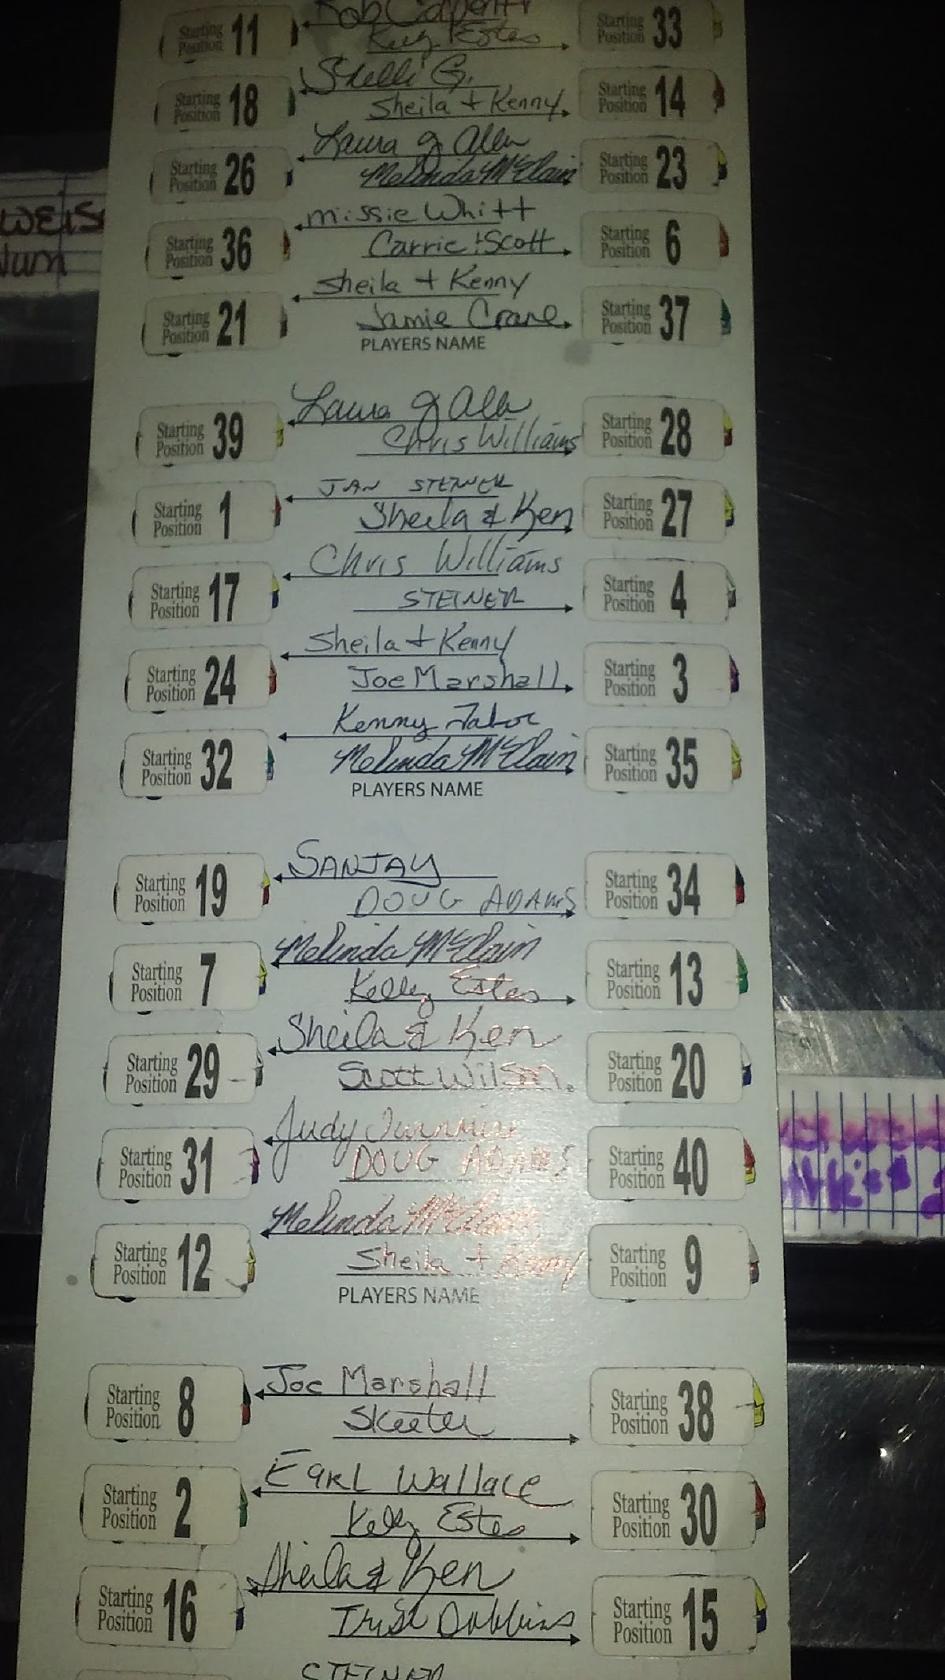 Starting Position 11 Rob Carpenter
Kelly Estes Starting Position 33
Starting Position 18 Shelli G.
Sheila + Kenny Starting Position 14
Starting Position 26 Laura & Allen
Melinda McClain Starting Position 23
Starting Position 36 missie Whitt
Carrie + Scott Starting Position 6
Starting Position 21 Sheila + Kenny
Jamie Crane Starting Position 37
PLAYERS NAME
Starting Position 39 Laura & Allen
Chris Williams Starting Position 28
Starting Position 1 JAN STEINER
Sheila & Ken Starting Position 27
Starting Position 17 Chris Williams
STEINER Starting Position 4
Starting Position 24 Sheila + Kenny
Joe Marshall Starting Position 3
Starting Position 32 Kenny Tabor
Melinda McClain Starting Position 35
PLAYERS NAME
Starting Position 19 SANJAY
DOUG ADAMS Starting Position 34
Starting Position 7 Melinda McClain
Kelly Estes Starting Position 13
Starting Position 29 Sheila & Ken
Scott Wilson. Starting Position 20
Starting Position 31 Judy
DOUG ADAMS Starting Position 40
Starting Position 12 Melinda McClain
Sheila + Kenny Starting Position 9
PLAYERS NAME
Starting Position 8 Joe Marshall
Skeeter Starting Position 38
Starting Position 2 EARL Wallace
Kelly Estes Starting Position 30
Starting Position 16 Sheila & Ken
Trist Dobbins Starting Position 15
STEINER